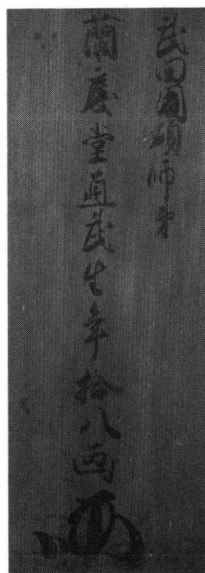 武田圓碩師弟
蘭慶堂直武生年拾八画